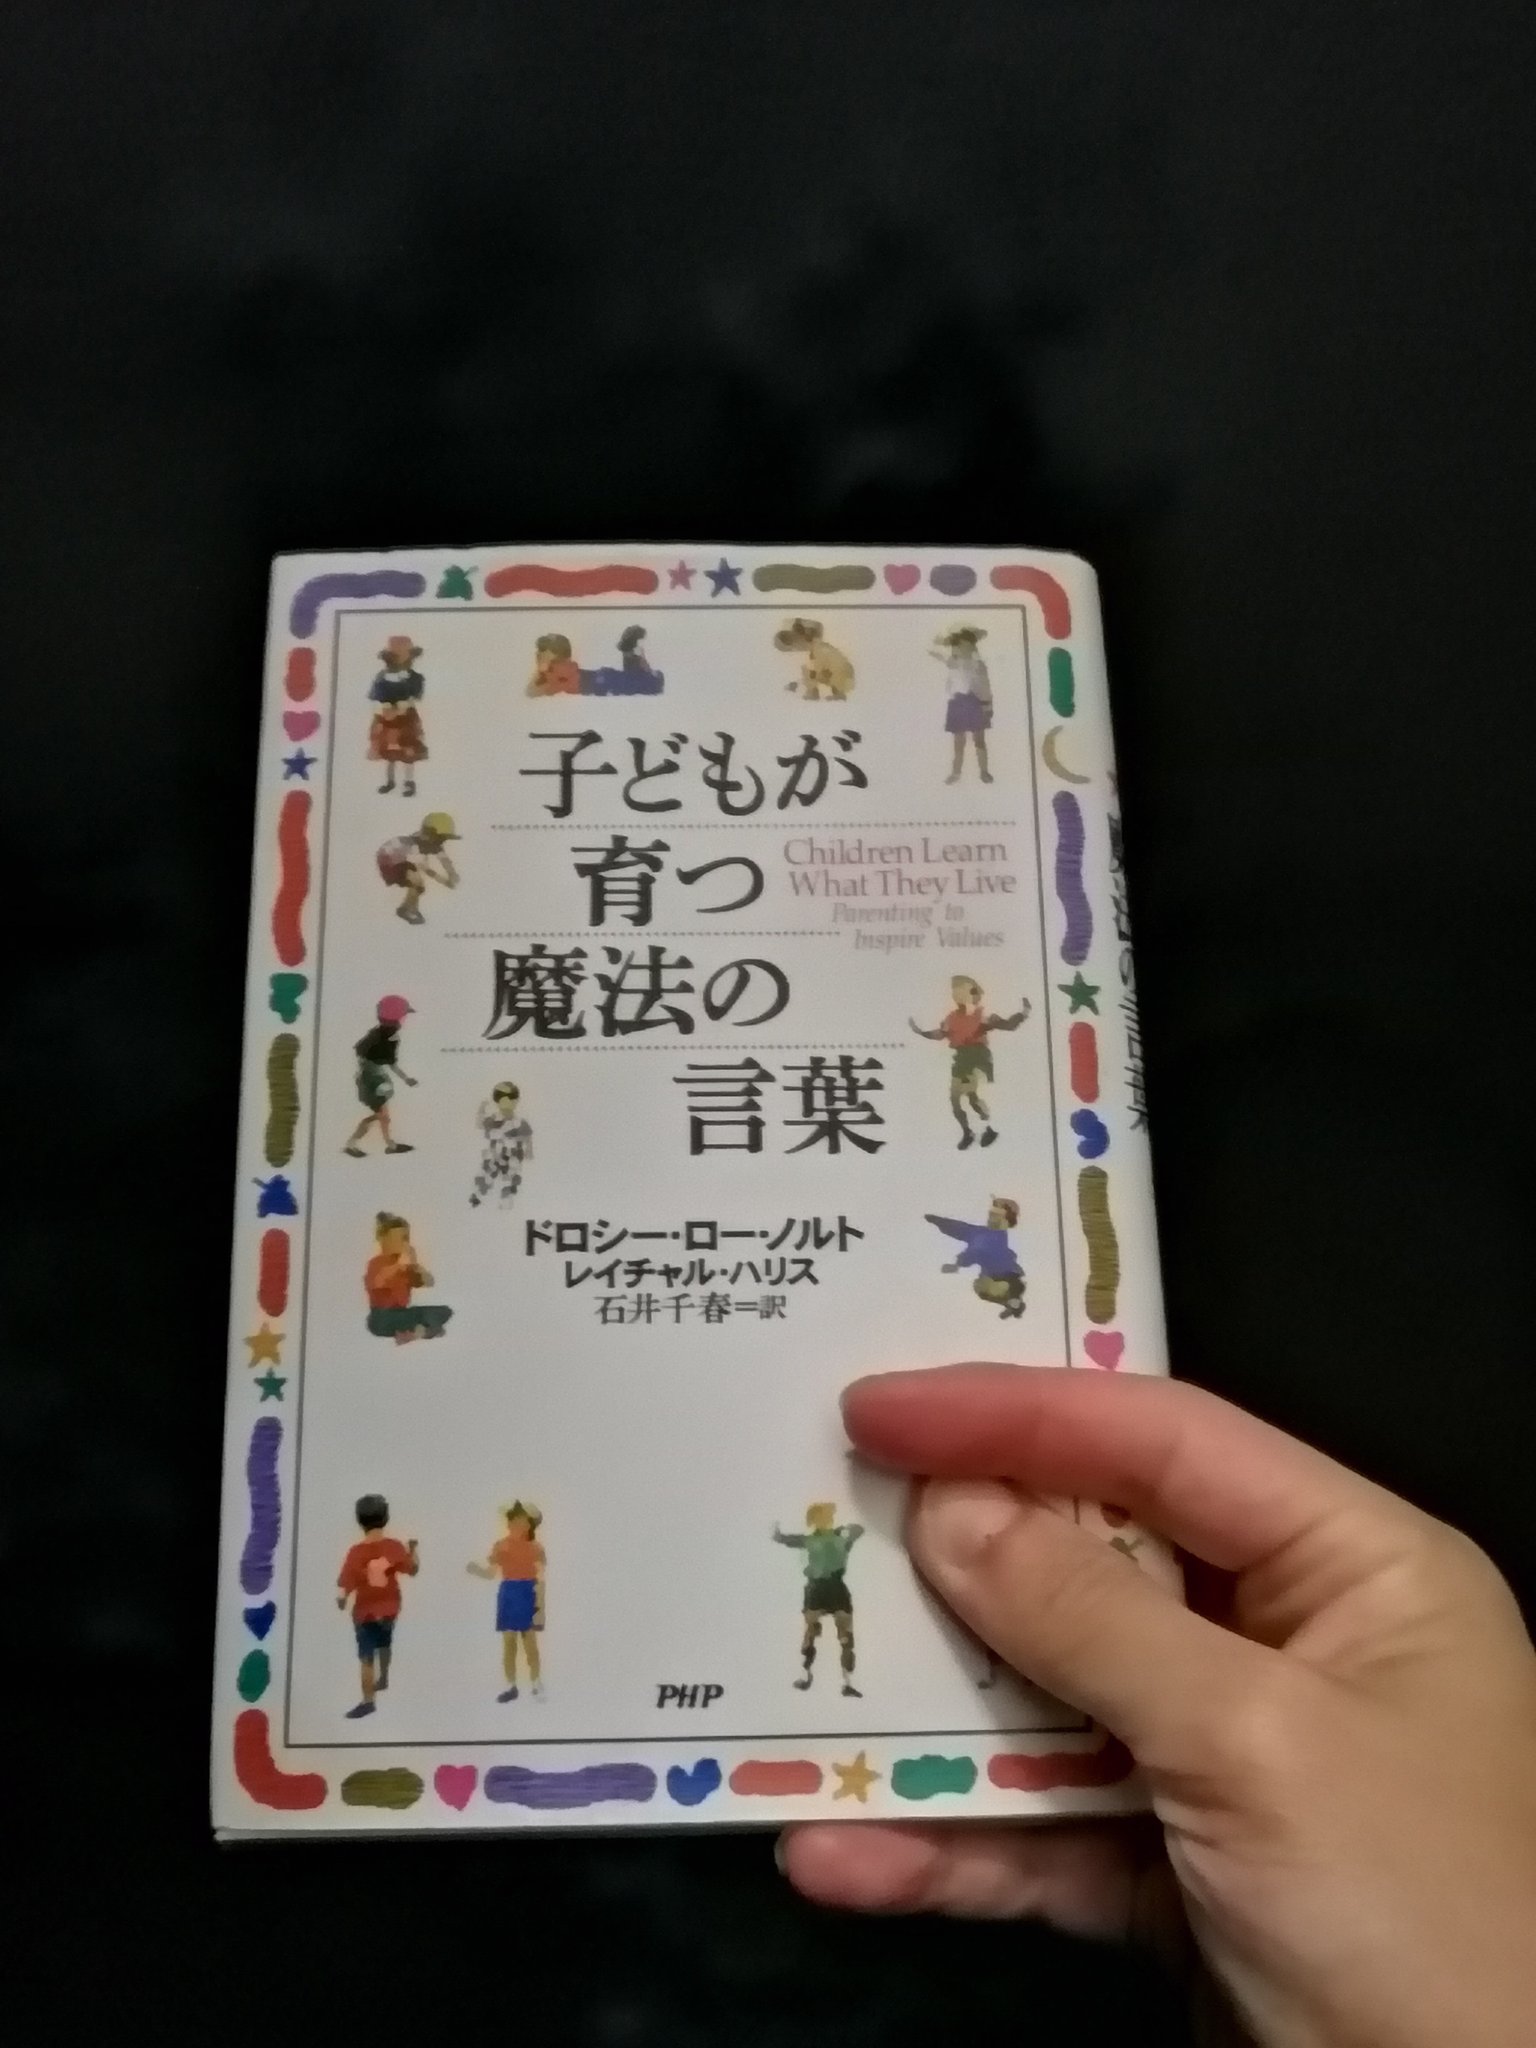 子どもが
育つ
Children Learn
What They Live
Parenting to
Inspire Values
魔法の
言葉
ドロシー・ロー・ノルト
レイチャル・ハリス
石井千春＝訳
PHP